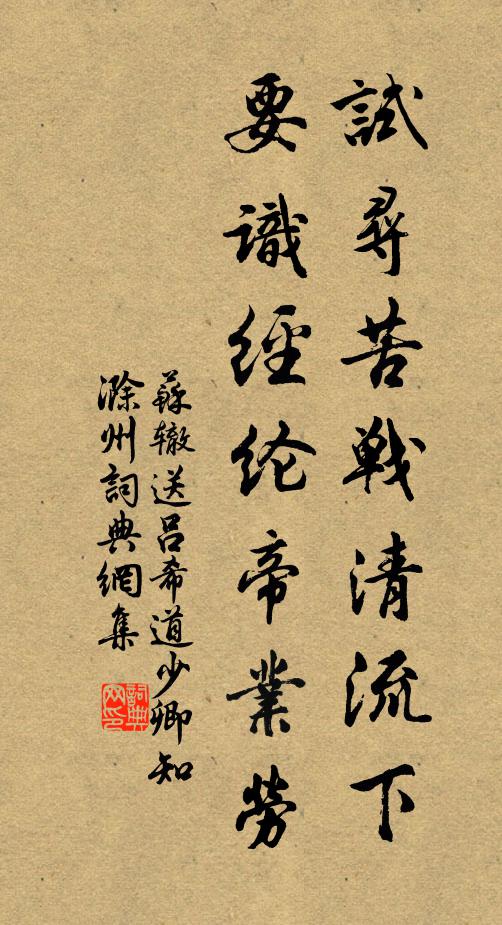 試尋苦戰清流下
要識經纶帝業勞
蘇辙送吕希道少卿知
滁州詞典網集
詞典网印